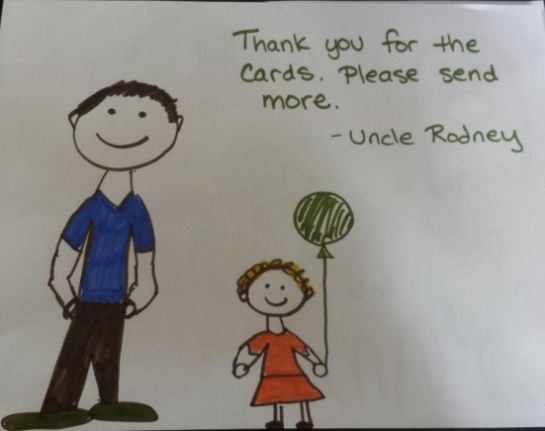 Thank you for the
Cards. Please send
more.
- Uncle Rodney